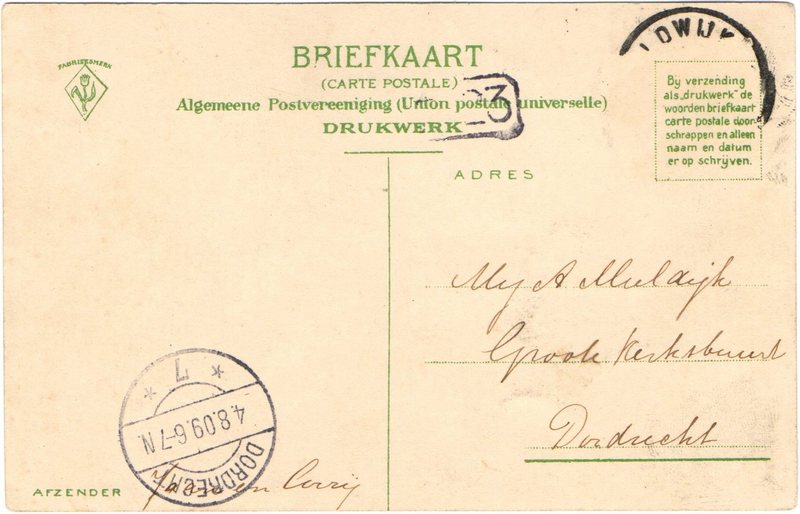 FABRIEKSMERK
BRIEFKAART
(CARTE POSTALE)
Algemeene Postvereeniging (Union postale universelle)
DRUKWERK
23
LDWIJK
By verzending
als „drukwerk" de
woorden briefkaart
carte postale door-
schrappen en alleen
naam en datum
er op schrijven.
ADRES
Mej A Muldijk
Groote Kerksbuurt
Dordrecht
* 7 *
4.8.09.6-7 N.
DORDRECHT
AFZENDER en Corrij